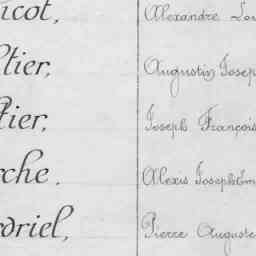 icot, Alexandre Lou
ltier, Augustin Josep
tier, Joseph François
rche. Alexis Joseph Em
driel, Pierre Auguste